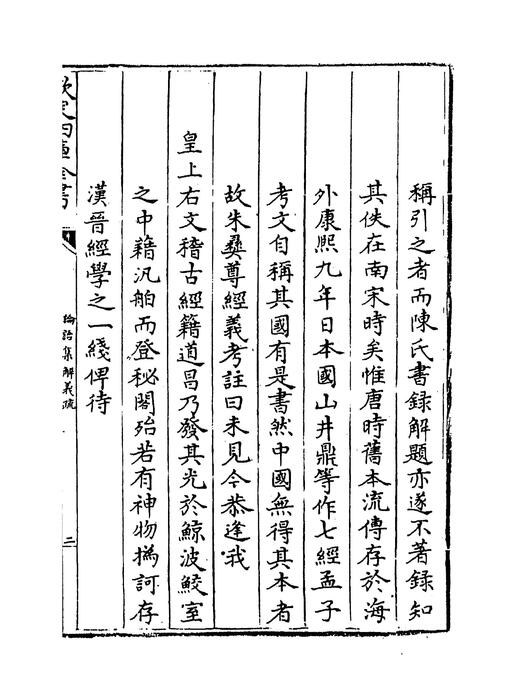 稱引之者而陳氏書録解題亦遂不著録知
其佚在南宋時矣惟唐時舊本流傳存於海
外康熙九年日本國山井鼎等作七經孟子
考文自稱其國有是書然中國無得其本者
故朱彝尊經義考註曰未見今恭逢我
皇上右文稽古經籍道昌乃發其光於鯨波鮫室
之中籍汎舶而登秘閣殆若有神物撝訶存
漢晉經學之一綫俾待
欽定四庫全書
論語集解義疏
二